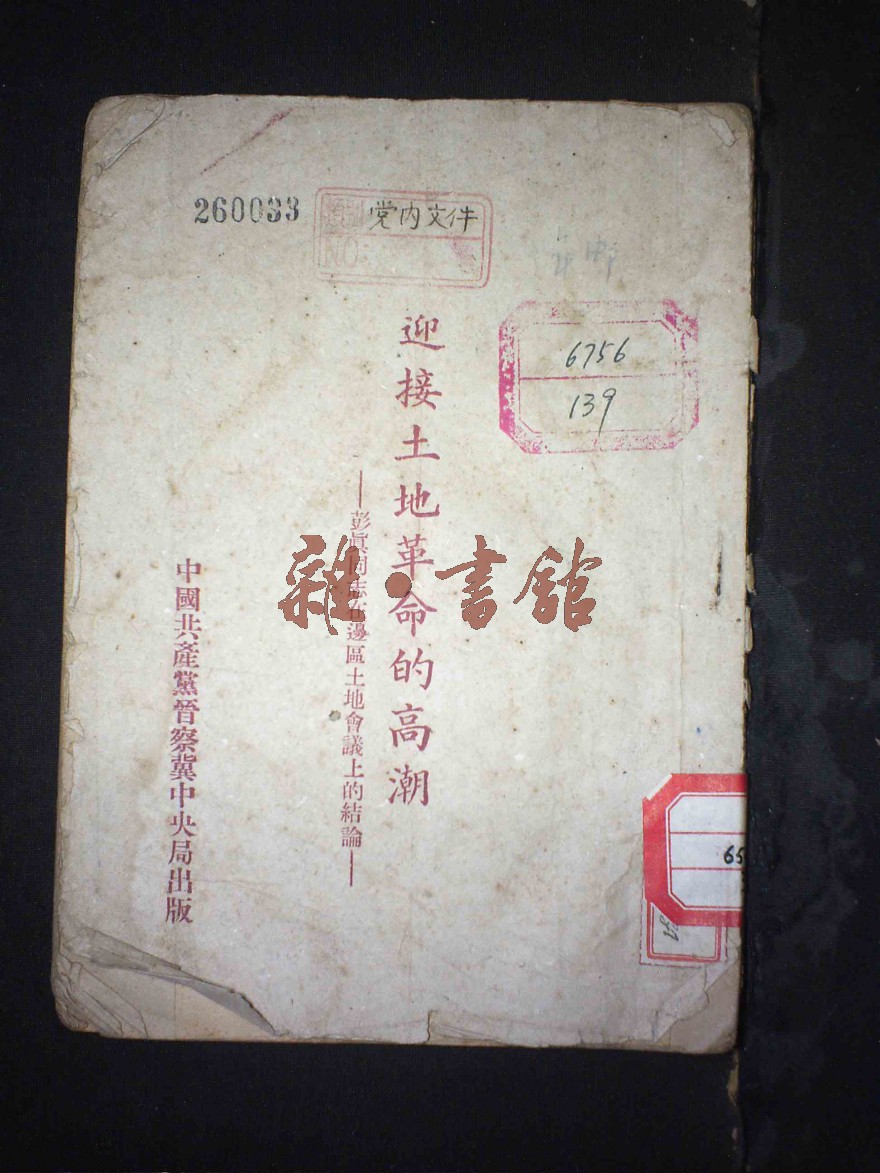 260033
党内文件
NO:
6756
139
迎接土地革命的高潮
——彭眞同志在邊區土地會議上的結論——
中國共產黨晉察冀中央局出版
雜·書館
65